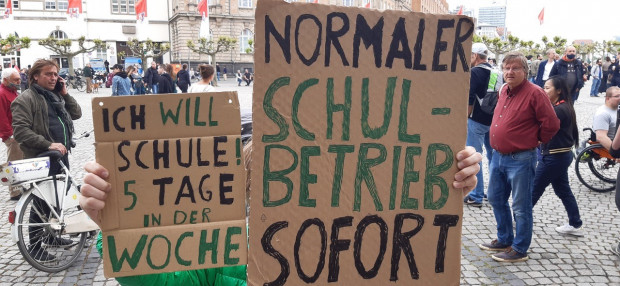 ICH WILL
SCHULE!
5 TAGE
IN DER
WOCHE
NORMALER
SCHUL-
BETRIEB
SOFORT